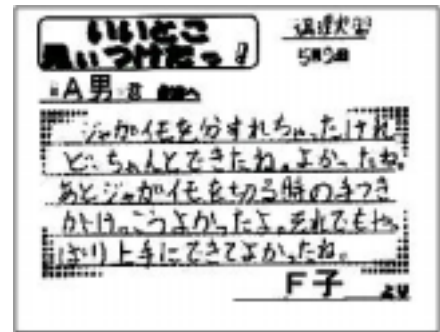 いいとこ
見いつけたっ!
調理実習
5月9日
A男君 さんへ
ジャガイモを分すれちゃったけれ
ど、ちゃんとできたね。よかったね。
あとジャガイモを切る時の手つき
がけっこうよかったよ。それでもやっ
ぱり上手にできてよかったね。
F子 より